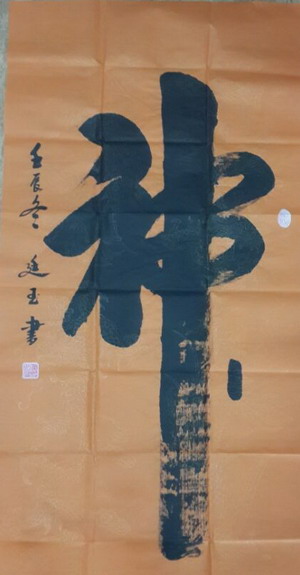 神
壬辰冬 廷玉書